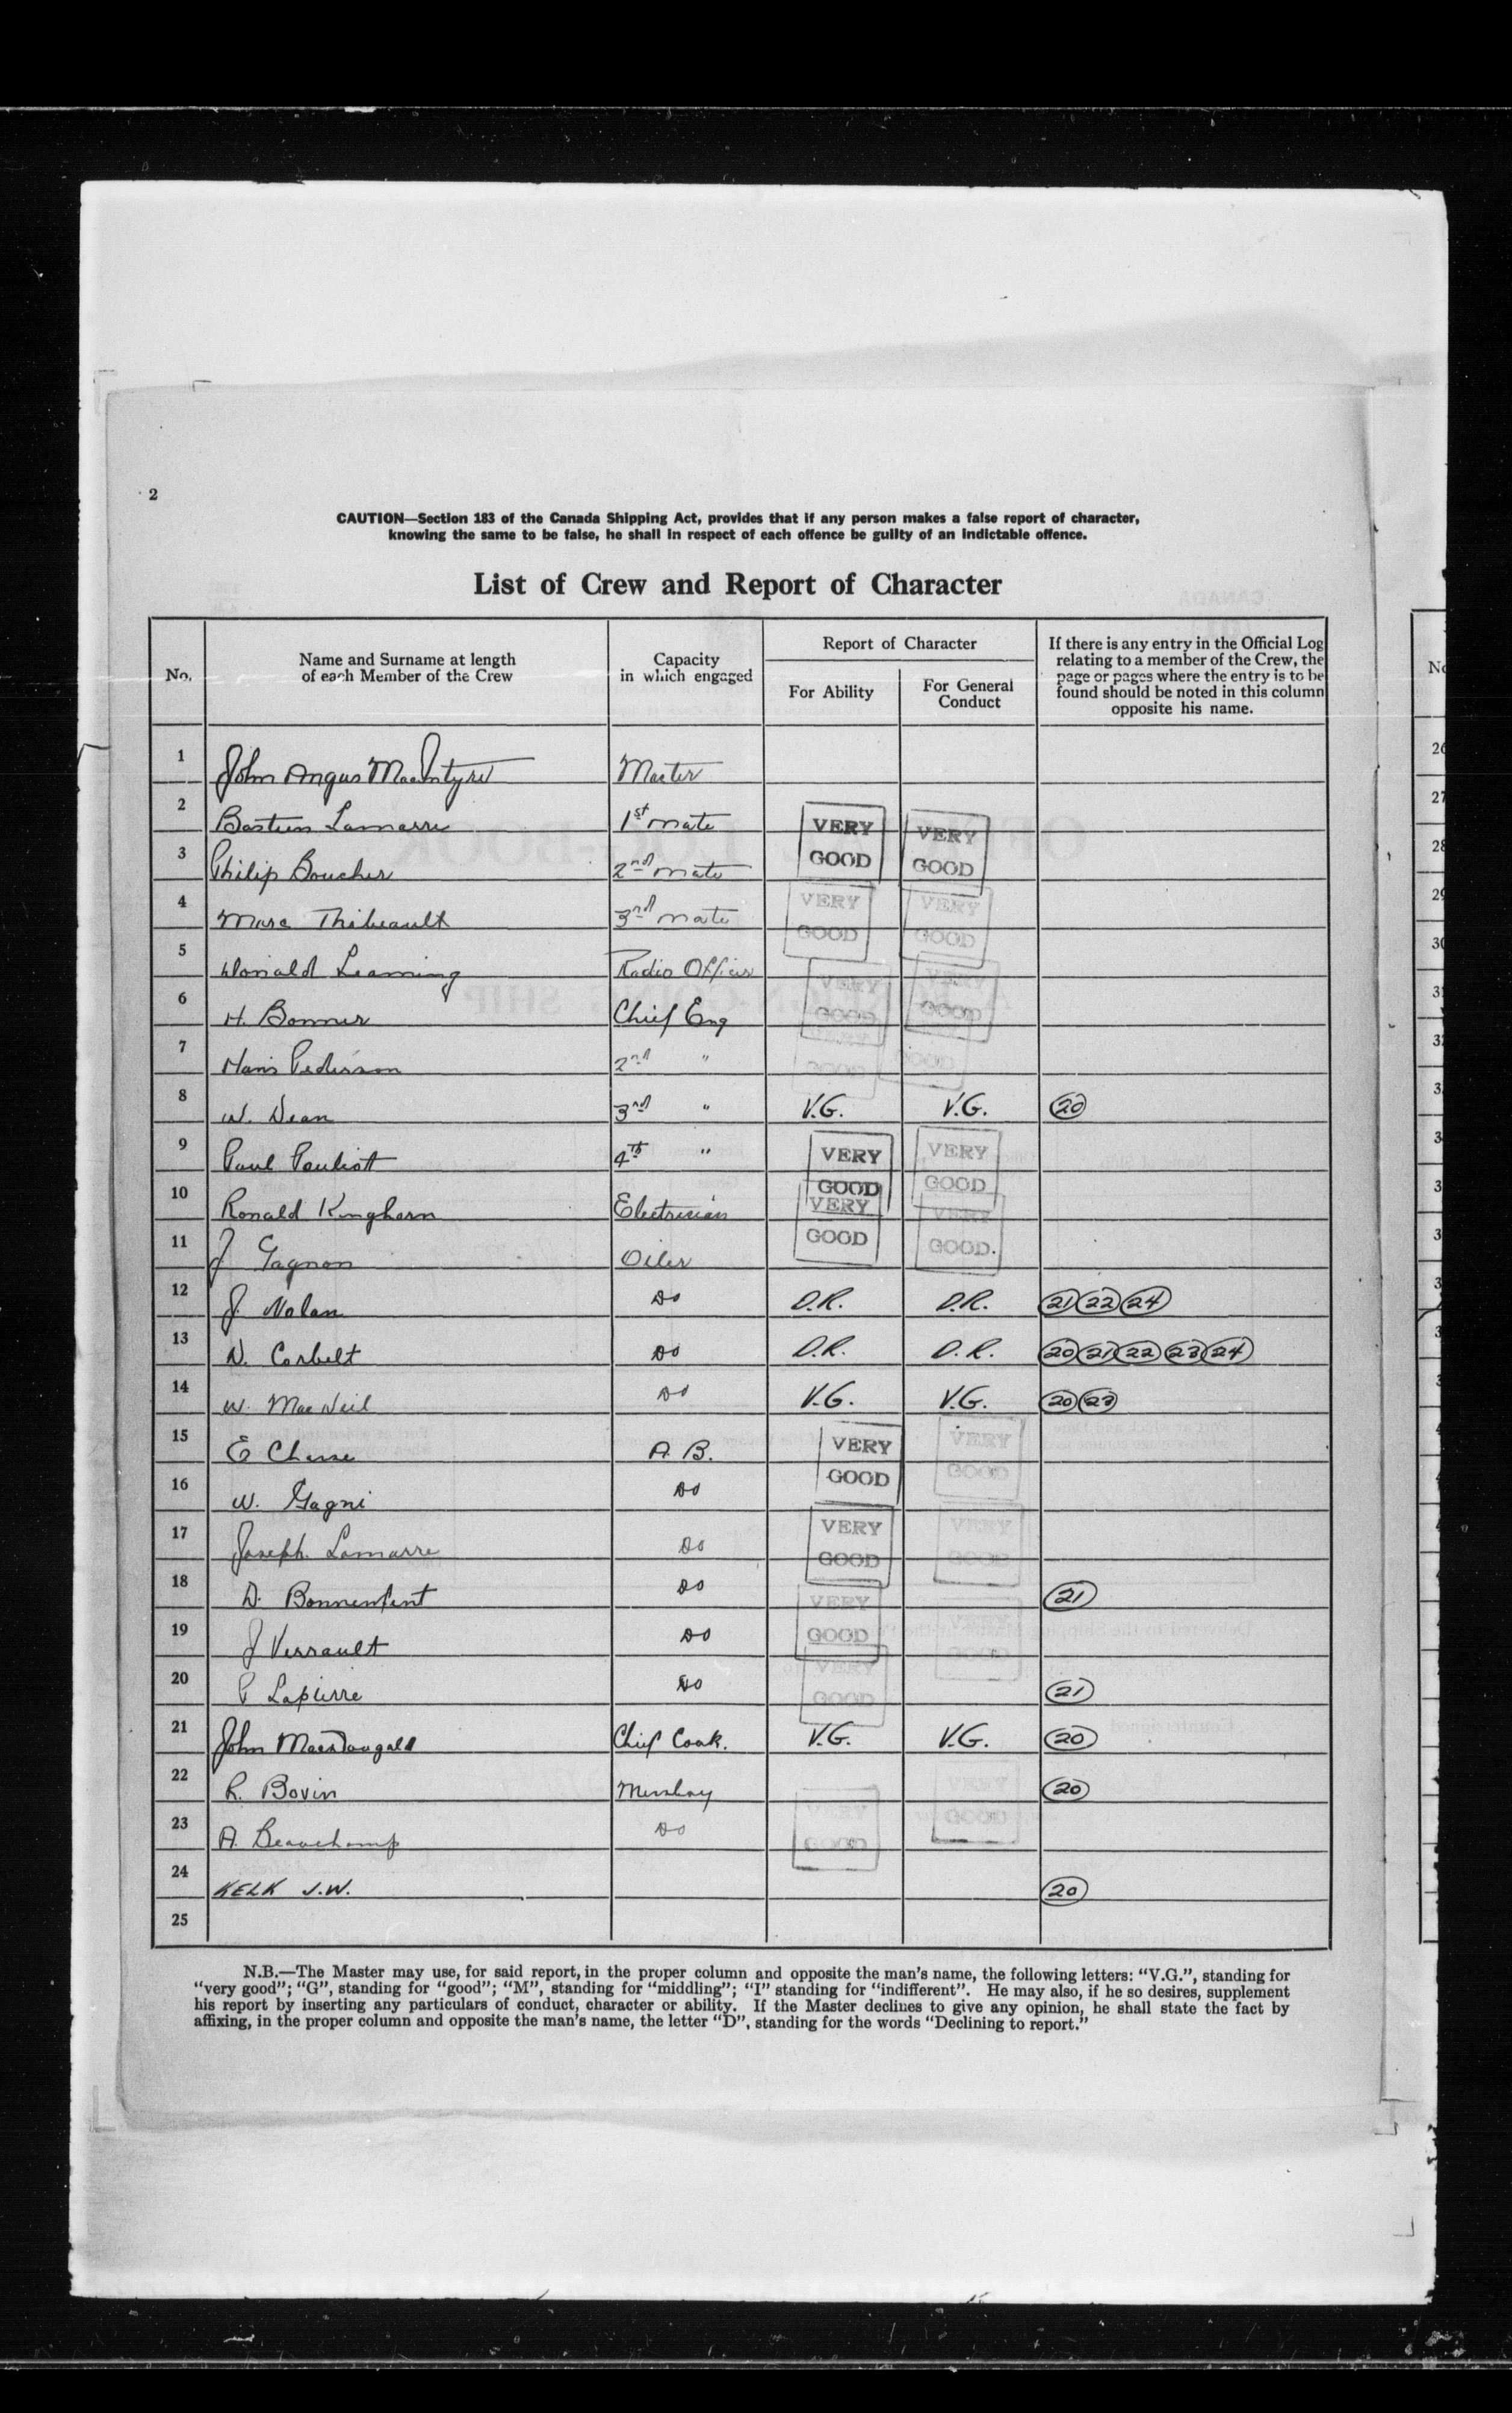 2
CAUTION—Section 183 of the Canada Shipping Act, provides that if any person makes a false report of character,
knowing the same to be false, he shall in respect of each offence be guilty of an indictable offence.
List of Crew and Report of Character
No. Name and Surname at length of each Member of the Crew Capacity in which engaged Report of Character For Ability For General Conduct If there is any entry in the Official Log relating to a member of the Crew, the page or pages where the entry is to be found should be noted in this column opposite his name.
1 John Angus MacIntyre Master
2 Bastien Lamarre 1st mate VERY GOOD VERY GOOD
3 Philip Boucher 2nd mate
4 Marc Thibeault 3rd mate VERY GOOD VERY GOOD
5 Donald Leaming Radio Officer
6 H. Bonner Chief Eng VERY GOOD VERY GOOD
7 Hans Pederson 2nd " GOOD GOOD
8 W. Dean 3rd " V.G. V.G. 20
9 Paul Pouliott 4th " VERY GOOD VERY GOOD
10 Ronald Kinghorn Electrician VERY GOOD VERY GOOD.
11 J Gagnon Oiler
12 J. Nolan Do D.R. D.R. 21 22 24
13 D. Corbett Do D.R. D.R. 20 21 22 23 24
14 W. MacNeil Do V.G. V.G. 20 23
15 E Chasse A.B. VERY GOOD VERY GOOD
16 W. Gagni Do
17 Joseph Lamarre Do VERY GOOD VERY GOOD
18 D. Bonnenfant Do VERY GOOD VERY GOOD 21
19 J Verrault Do
20 P Lapierre Do VERY GOOD 21
21 John MacDougald Chief Cook. V.G. V.G. 20
22 R. Bovin Messboy VERY GOOD VERY GOOD 20
23 A. Beauchamp Do
24 KELK J.W. 20
25
N.B.—The Master may use, for said report, in the proper column and opposite the man's name, the following letters: "V.G.", standing for
"very good"; "G", standing for "good"; "M", standing for "middling"; "I" standing for "indifferent". He may also, if he so desires, supplement
his report by inserting any particulars of conduct, character or ability. If the Master declines to give any opinion, he shall state the fact by
affixing, in the proper column and opposite the man's name, the letter "D", standing for the words "Declining to report."